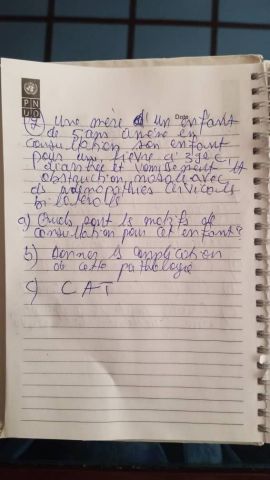 P N
U D
Date
(2) Une mère d'un enfant
de 5ans amène en
consultation son enfant
pour une fièvre à 39°C,
diarrhée et vomissement et
obstruction nasale avec
ds adénopathies cervicales
bilatérals
a) Quels sont ls motifs de
consultation pour cet enfant?
b) Donner ls complication
de cette pathologie
c) C A T